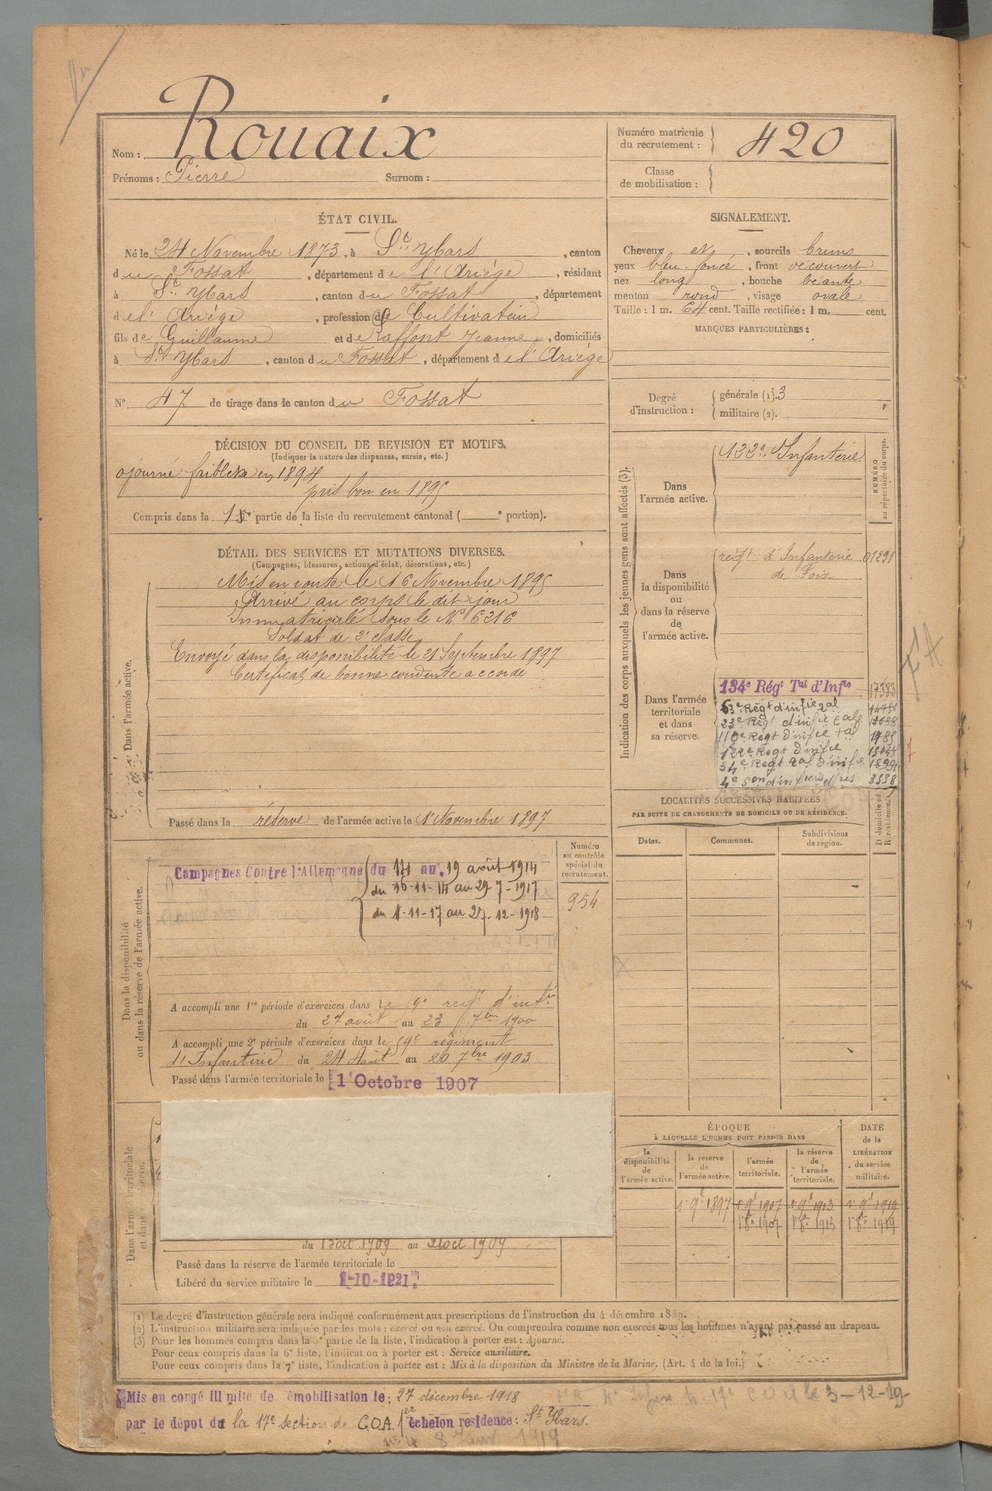 Nom : Rouaix
Prénoms : Pierre Surnom :
Numéro matricule du recrutement : 420
Classe de mobilisation :
ÉTAT CIVIL.
Né le 24 Novembre 1873, à St Ybars, canton
du Fossat, département de l'Ariége, résidant
à St Ybars, canton du Fossat, département
de l'Ariége, profession de Cultivateur
fils de Guillaume et de Laffont Jeanne, domiciliés
à St Ybars, canton du Fossat, département de l'Ariége
N° 47 de tirage dans le canton du Fossat
SIGNALEMENT.
Cheveux et, sourcils bruns
yeux bleu foncé, front découvert
nez long, bouche béante
menton rond, visage ovale
Taille : 1 m. 64 cent. Taille rectifiée : 1 m. cent.
MARQUES PARTICULIÈRES :
Degré d'instruction : générale (1). 3
militaire (2).
DÉCISION DU CONSEIL DE REVISION ET MOTIFS.
(Indiquer la nature des dispenses, sursis, etc.)
ajourné faiblesse en 1894
pris bon en 1895
Compris dans la partie de la liste du recrutement cantonal ( portion).
DÉTAIL DES SERVICES ET MUTATIONS DIVERSES.
(Campagnes, blessures, actions d'éclat, décorations, etc.)
Dans l'armée active.
Mis en route le 16 Novembre 1895
Arrivé au corps le dit jour
Immatriculé sous le N° 6216
Soldat de 2e classe
Envoyé dans la disponibilité le 21 Septembre 1897
Certificat de bonne conduite accordé
Passé dans la réserve de l'armée active le 1 Novembre 1897
Indication des corps auxquels les jeunes gens sont affectés (3).
NUMÉRO au répertoire du corps.
Dans l'armée active. 133e Infanterie
Dans la disponibilité ou dans la réserve de l'armée active.
regt d'Infanterie 01291
de Foix
Dans l'armée territoriale et dans sa réserve.
134e Régt Tal d'Infie 17383
63e Régt d'infie
23e Régt d'infie
110e Regt d'infie 1485
122e Regt d'infie
34e Regt d'infie 1899
4e son d'infirmiers 8338
LOCALITÉS SUCCESSIVES HABITÉES
PAR SUITE DE CHANGEMENTS DE DOMICILE OU DE RÉSIDENCE.
Dates. Communes. Subdivisions de région. D domicile ou R résidence.
Numéro au contrôle spécial du recrutement.
954
Dans la disponibilité ou dans la réserve de l'armée active.
Campagnes Contre l'Allemagne du 14 au 19 août 1914
du 16-11-14 au 29-7-1917
du 1-11-17 au 27-12-1918
A accompli une 1re période d'exercices dans le 59e regt d'infie
du 27 août au 23 7bre 1900
A accompli une 2e période d'exercices dans le 59e régiment
d'Infanterie du 24 Août au 20 7bre 1903
Passé dans l'armée territoriale le 1 Octobre 1907
Dans l'armée territoriale et dans
du 13 oct 1909 au 21 oct 1909
Passé dans la réserve de l'armée territoriale le
Libéré du service militaire le 1-10-1921
ÉPOQUE
À LAQUELLE L'HOMME DOIT PASSER DANS
la disponibilité de l'armée active. la réserve de l'armée active. l'armée territoriale. la réserve de l'armée territoriale.
DATE de la LIBÉRATION du service militaire.
1897 1907 1913 1919
1907 1913 1919
(1) Le degré d'instruction générale sera indiqué conformément aux prescriptions de l'instruction du 4 décembre 1889.
(2) L'instruction militaire sera indiquée par les mots : exercé ou non exercé. On comprendra comme non exercés tous les hommes n'ayant pas passé au drapeau.
(3) Pour les hommes compris dans la 5e partie de la liste, l'indication à porter est : Ajourné.
Pour ceux compris dans la 6e liste, l'indication à porter est : Service auxiliaire.
Pour ceux compris dans la 7e liste, l'indication à porter est : Mis à la disposition du Ministre de la Marine. (Art. 4 de la loi.)
Mis en congé illimité de démobilisation le : 27 décembre 1918
par le dépot de la 17e section de C.O.A. 1er échelon résidence : St Ybars.
17e C O A le 3-12-19
8 Janv 1919